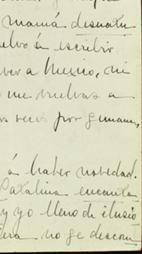 mamá desnatu
uelvo á escribir
ver a Mezno, mi
me vuelvas a
veces por semana,
á haber novedad.
Catalina encanta
y yo lleno de ilusió
no ge descom